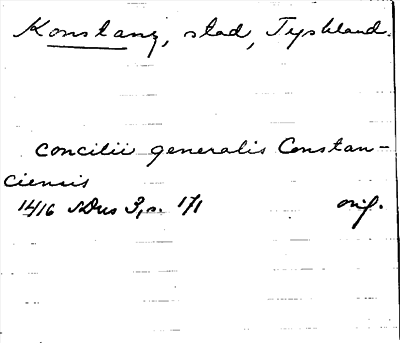 Konstanz, stad, Tyskland.
concilii generalis Constan-
ciensis
1416 SDns 3, s. 171 orig.